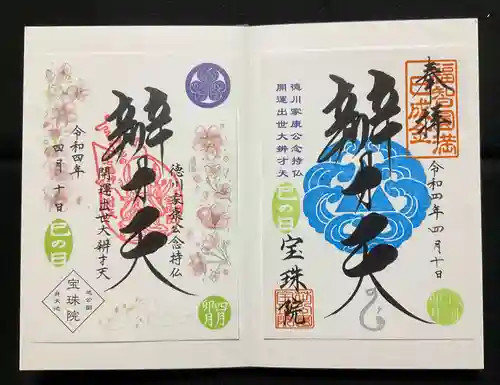 奉拝
辨才天
徳川家康公念持仏
開運出世大辨才天
巳の日
令和四年四月十日
宝珠院
辨才天
徳川家康公念持仏
開運出世大辨才天
令和四年
四月十日
巳の日
芝公園
弁天池
宝珠院
四月
卯月